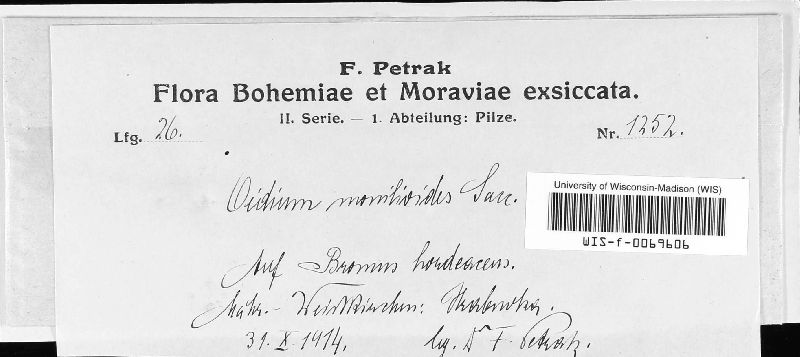 F. Petrak
Flora Bohemiae et Moraviae exsiccata.
II. Serie. — 1. Abteilung: Pilze.
Lfg. 26.
Nr. 1252.
Oidium monilioides Sacc.
University of Wisconsin-Madison (WIS)
WIS-f-0069606
Auf Bromus hordeaceus.
Mähr.-Weisskirchen: Skalicka.
31. X. 1914. lg. Dr F. Petrak.